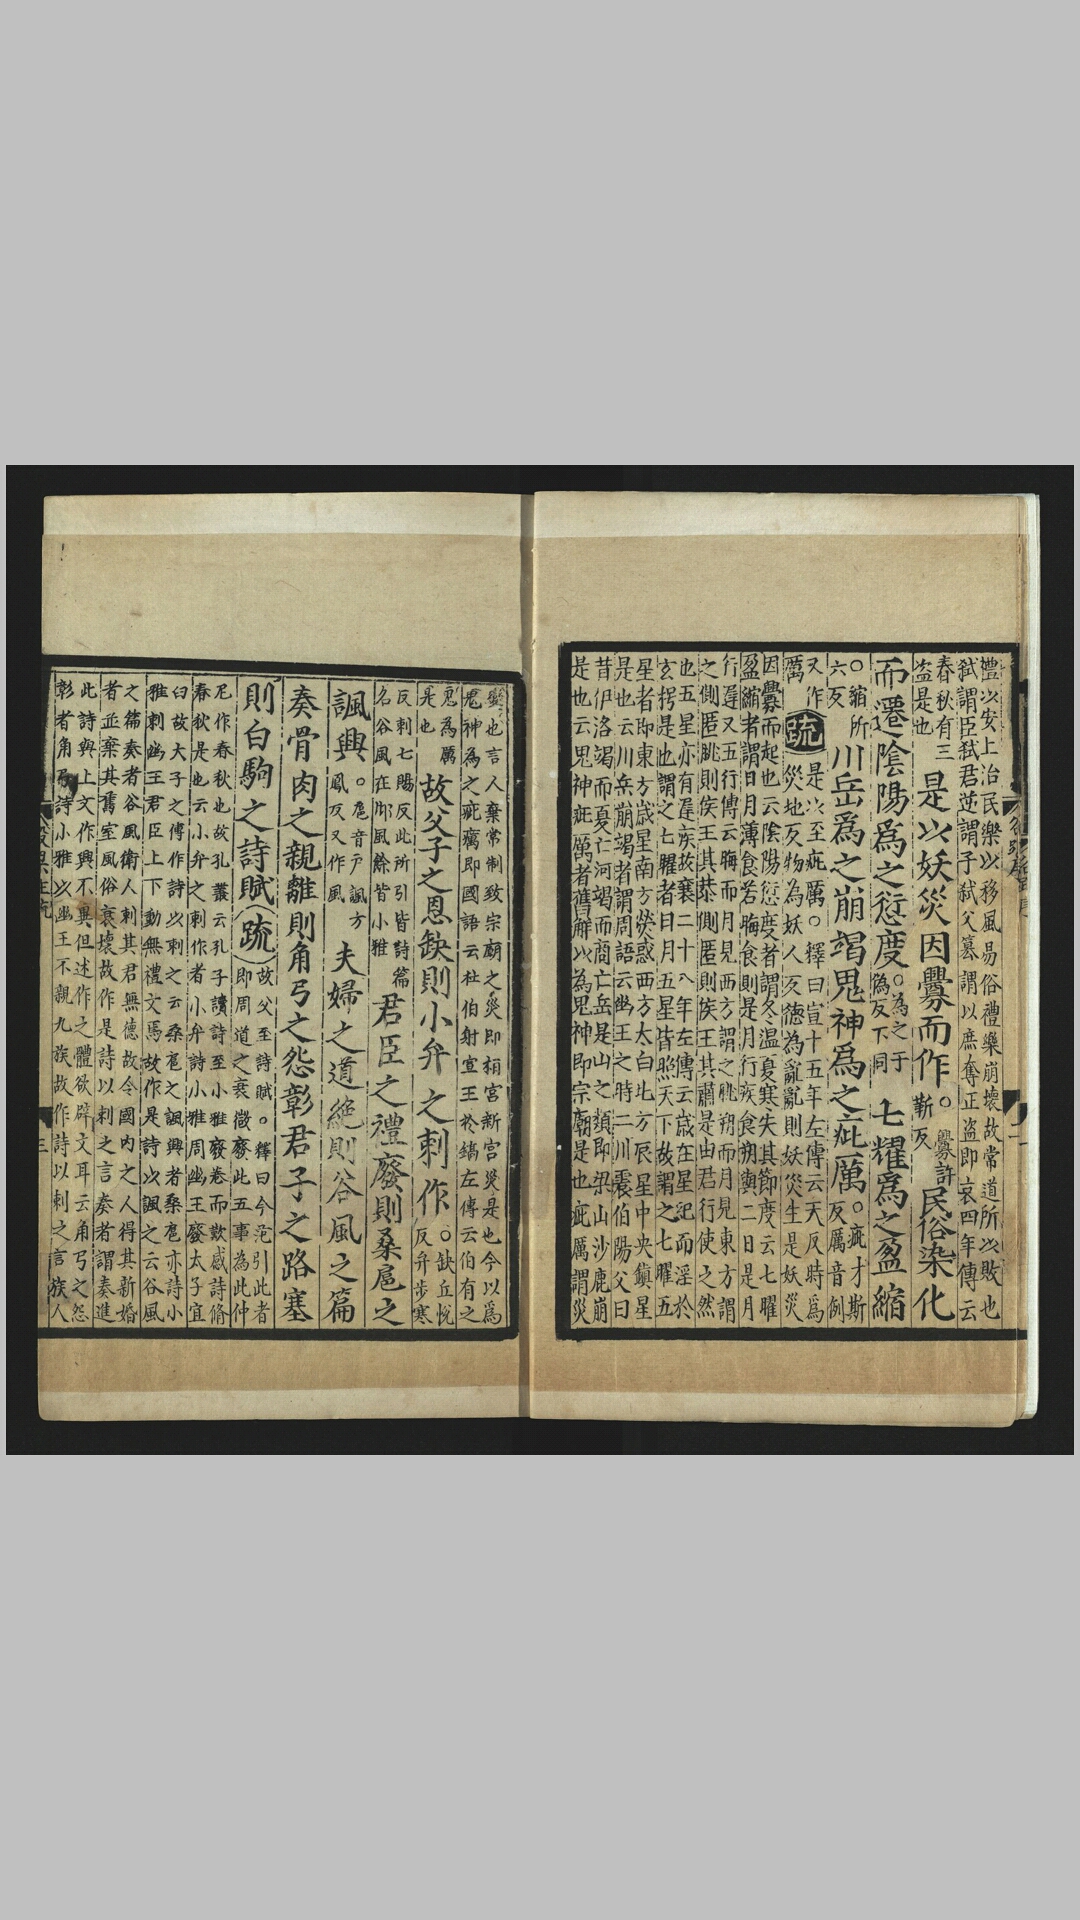 禮以安上治民樂以移風易俗禮樂崩壞故常道所以敗也
弑謂臣弑君逆謂子弑父篡謂以庶奪正盜即哀四年傳云
春秋有三
盜是也
是以妖災因釁而作
。釁許
靳反
民俗染化
而遷陰陽爲之愆度
。為之于
偽反下同
七耀爲之盈縮
。縮所
六反
川岳爲之崩竭鬼神爲之疵厲
。疵才斯
反厲音例
又作
厲
疏
是以至疵厲。釋曰宣十五年左傳云天反時爲
災地反物為妖人反德為亂亂則妖災生是妖災
因釁而起也云陰陽愆度者謂冬温夏寒失其節度云七曜
盈縮者謂日月薄食若晦食則是月行疾食朔與二日是月
行遲又五行傳云晦而月見西方謂之朓朔而月見東方謂
之側匿朓則侯王其荼側匿則侯王其肅是由君行使之然
也五星亦有遲疾故襄二十八年左傳云歲在星紀而淫於
玄枵是也謂之七曜者日月五星皆照天下故謂之七曜五
星者即東方歲星南方熒惑西方太白北方辰星中央鎮星
是也云川岳崩竭者謂周語云幽王之時三川震伯陽父曰
昔伊洛竭而夏亡河竭而商亡岳是山之類即梁山沙鹿崩
是也云鬼神疵厲者舊解以為鬼神即宗廟是也疵厲謂災
變也言人棄常制致宗廟之災即桓宮新宮災是也今以爲
鬼神為之疵癘即國語云杜伯射宣王於鎬左傳云伯有之
鬼為厲
是也
故父子之恩缺則小弁之刺作
。缺丘悅
反弁步寒
反刺七賜反此所引皆詩篇
名谷風在邶風餘皆小雅
君臣之禮廢則桑扈之
諷興
。扈音戶諷方
鳳反又作風
夫婦之道絕則谷風之篇
奏骨肉之親離則角弓之怨彰君子之路塞
則白駒之詩賦
疏
故父至詩賦。釋曰今范引此者
即周道之衰微廢此五事為此仲
尼作春秋也故孔叢云孔子讀詩至小雅廢卷而歎感詩脩
春秋是也云小弁之刺作者小弁詩小雅周幽王廢太子宜
臼故大子之傅作詩以刺之云桑扈之諷興者桑扈亦詩小
雅刺幽王君臣上下動無禮文焉故作是詩以諷之云谷風
之篇奏者谷風衛人刺其君無德故令國内之人得其新婚
者並棄其舊室風俗衰壞故作是詩以刺之言奏者謂奏進
此詩與上文作興不異但述作之體欲辟文耳云角弓之怨
彰者角弓詩小雅以幽王不親九族故作詩以刺之言族人
三